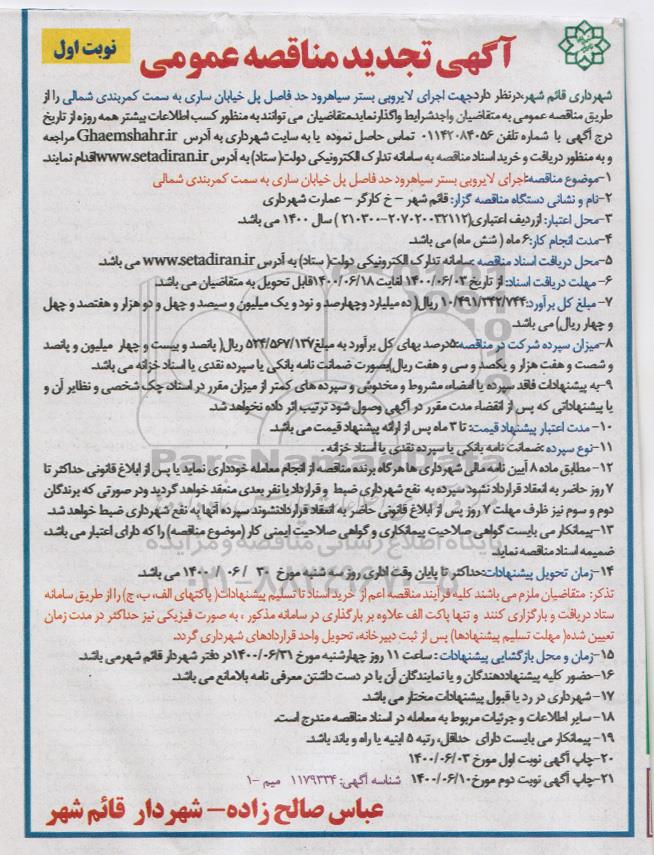 نوبت اول
آگهی تجدید مناقصه عمومی
شهرداری قائم شهر،درنظر داردجهت اجرای لایروبی بستر سیاهرود حد فاصل پل خیابان ساری به سمت کمربندی شمالی را از
طریق مناقصه عمومی به متقاضیان واجدشرایط واگذارنماید.متقاضیان می توانند به منظور کسب اطلاعات بیشتر همه روزه از تاریخ
درج آگهی با شماره تلفن ۰۱۱۴۲۰۸۴۰۵۶ تماس حاصل نموده یا به سایت شهرداری به آدرس Ghaemshahr.ir مراجعه
و به منظور دریافت و خرید اسناد مناقصه به سامانه تدارک الکترونیکی دولت( ستاد) به آدرس www.setadiran.irاقدام نمایند.
۱-موضوع مناقصه:اجرای لایروبی بستر سیاهرود حد فاصل پل خیابان ساری به سمت کمربندی شمالی
۲-نام و نشانی دستگاه مناقصه گزار: قائم شهر - خ کارگر - عمارت شهرداری
۳-محل اعتبار: ازردیف اعتباری(۲۱۰۳۰۰-۲۰۷۰۲۰۰۳۲۱۱۲ ) سال ۱۴۰۰ می باشد.
۴-مدت انجام کار:۶ ماه ( شش ماه) می باشد.
۵-محل دریافت اسناد مناقصه :سامانه تدارک الکترونیکی دولت( ستاد) به آدرس www.setadiran.ir می باشد.
۶- مهلت دریافت اسناد: از تاریخ ۱۴۰۰/۰۶/۰۳ لغایت ۱۴۰۰/۰۶/۱۸قابل تحویل به متقاضیان می باشد.
۷-مبلغ کل برآورد:۱۰/۴۹۱/۳۴۲/۷۴۴ ریال( ده میلیارد وچهارصد و نود و یک میلیون و سیصد و چهل و دو هزار و هفتصد و چهل
و چهار ریال) می باشد.
۸-میزان سپرده شرکت در مناقصه:۵درصد بهای کل برآورد به مبلغ۵۲۴/۵۶۷/۱۳۷ ریال( پانصد و بیست و چهار میلیون و پانصد
و شصت و هفت هزار و یکصد و سی و هفت ریال)بصورت ضمانت نامه بانکی یا سپرده نقدی یا اسناد خزانه می باشد.
۹-به پیشنهادات فاقد سپرده یا امضاء، مشروط و مخدوش و سپرده های کمتر از میزان مقرر در اسناد، چک شخصی و نظایر آن و
یا پیشنهاداتی که پس از انقضاء مدت مقرر در آگهی وصول شود ترتیب اثر داده نخواهد شد.
۱۰- مدت اعتبار پیشنهاد قیمت: تا ۳ ماه پس از ارائه پیشنهاد قیمت می باشد.
۱۱-نوع سپرده :ضمانت نامه بانکی یا سپرده نقدی یا اسناد خزانه .
۱۲- مطابق ماده ۸ آیین نامه مالی شهرداری ها هرگاه برنده مناقصه از انجام معامله خودداری نماید یا پس از ابلاغ قانونی حداکثر تا
۷ روز حاضر به انعقاد قرارداد نشود سپرده به نفع شهرداری ضبط و قرارداد با نفر بعدی منعقد خواهد گردید ودر صورتی که برندگان
دوم و سوم نیز ظرف مهلت ۷ روز پس از ابلاغ قانونی حاضر به انعقاد قراردادنشوند سپرده آنها به نفع شهرداری ضبط خواهد شد.
۱۳-پیمانکار می بایست گواهی صلاحیت پیمانکاری و گواهی صلاحیت ایمنی کار (موضوع مناقصه) را که دارای اعتبار می باشد،
ضمیمه اسناد مناقصه نماید.
۱۴-زمان تحویل پیشنهادات:حداکثر تا پایان وقت اداری روز سه شنبه مورخ ۳۰ / ۰۶ / ۱۴۰۰ می باشد.
تذکر: متقاضیان ملزم می باشند کلیه فرآیند مناقصه اعم از خرید اسناد تا تسلیم پیشنهادات( پاکتهای الف، ب، ج) را از طریق سامانه
ستاد دریافت و بارگزاری کنند و تنها پاکت الف علاوه بر بارگذاری در سامانه مذکور ، به صورت فیزیکی نیز حداکثر در مدت زمان
تعیین شده( مهلت تسلیم پیشنهادها) پس از ثبت دبیرخانه، تحویل واحد قراردادهای شهرداری گردد.
۱۵-زمان و محل بازگشایی پیشنهادات : ساعت ۱۱ روز چهارشنبه مورخ ۱۴۰۰/۰۶/۳۱در دفتر شهردار قائم شهرمی باشد.
۱۶-حضور کلیه پیشنهاددهندگان و یا نمایندگان آن با در دست داشتن معرفی نامه بلامانع می باشد.
۱۷-شهرداری در رد یا قبول پیشنهادات مختار می باشد.
۱۸-سایر اطلاعات و جزئیات مربوط به معامله در اسناد مناقصه مندرج است.
۱۹- پیمانکار می بایست دارای حداقل، رتبه ۵ ابنیه یا راه و باند باشد.
۲۰-چاپ آگهی نوبت اول مورخ ۱۴۰۰/۰۶/۰۳
۲۱-چاپ آگهی نوبت دوم مورخ ۱۴۰۰/۰۶/۱۰ شناسه آگهی: ۱۱۷۹۳۳۴ میم -۱
عباس صالح زاده- شهردار قائم شهر
ParsNamadData
پایگاه اطلاع رسانی مناقصه و مزایده